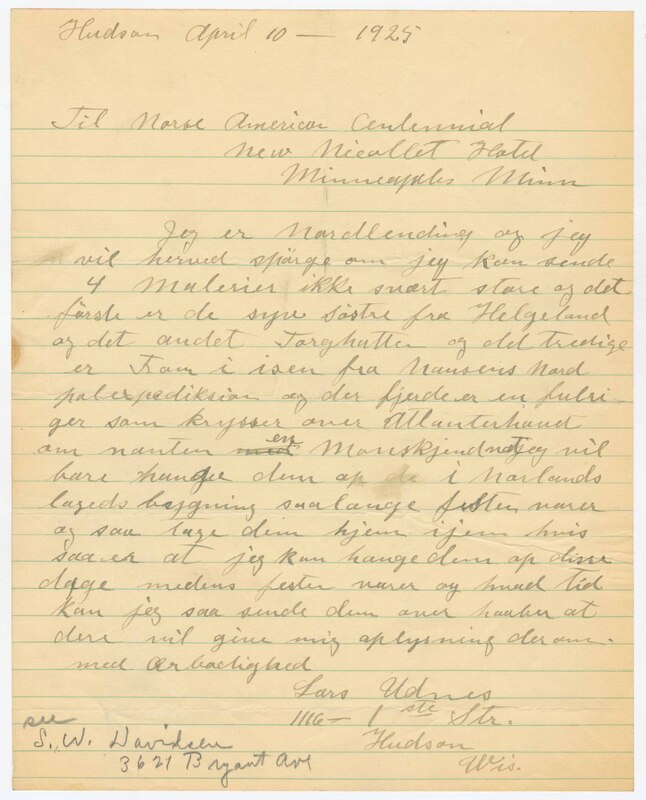 Hudson April 10 — 1925
Til Norse American Centennial
New Nicollet Hotel
Minneapolis Minn
Jeg er Nordlending og jeg
vil herved spörge om jeg kan sende
4 Malerier ikke svært store og det
förste er de syv söstre fra Helgeland
og det andet Torghatten og del tredige
er Fram i isen fra Nansens Nord
polexpediksion og der fjerde er en fulri
ger som krysser over Atlanterhand
om nanten en Monskjendnat jeg vil
bare hange dem op i Norlands
lageds bygning saalange festen varer
og saa tage dem hjem ijem hvis
saa er at jeg kan hange dem op disse
dage medens festen varer og hvad tid
kan jeg saa sende dem over haaber at
dere vil give mig oplysning derom.
med Ærbodighed
Lars Udnes
1116 — 1 ste Str.
Hudson
Wis.
see
S. W. Davidsen
3621 Bryant Ave